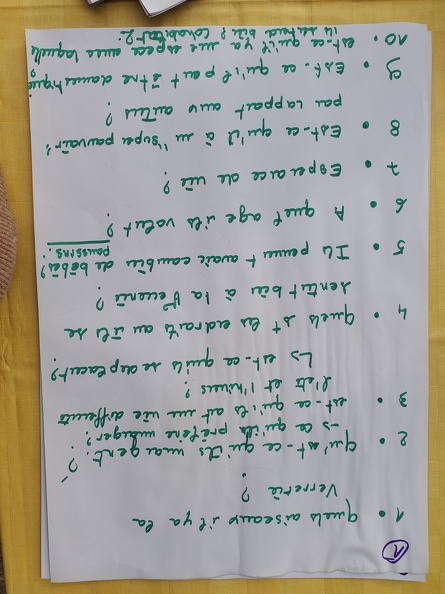 ①
1 • quels oiseaux il y a la
Verrerie ?
2 • qu'est-ce qu'ils mangent ?
-> ce qu'ils préfère manger ?
3 • est-ce qu'ils ont une vie différente
l'été et l'hiver ?
L> est-ce qu'ils se deplacent ?
4 • quels st les endroits où ils se
sentent bien à la Verrerie ?
5 • Ils peuvent avoir combien de bébés ?
poussins.
6 • A quel age ils volent ?
7 • Esperance de vie ?
8 • Est-ce qu'il a un "super pouvoir"
par rapport aux autres ?
9 • Est-ce qu'il peut être domestique ?
10 • est-ce qu'il y a une espèce avec laquelle
ils cohabitent ?